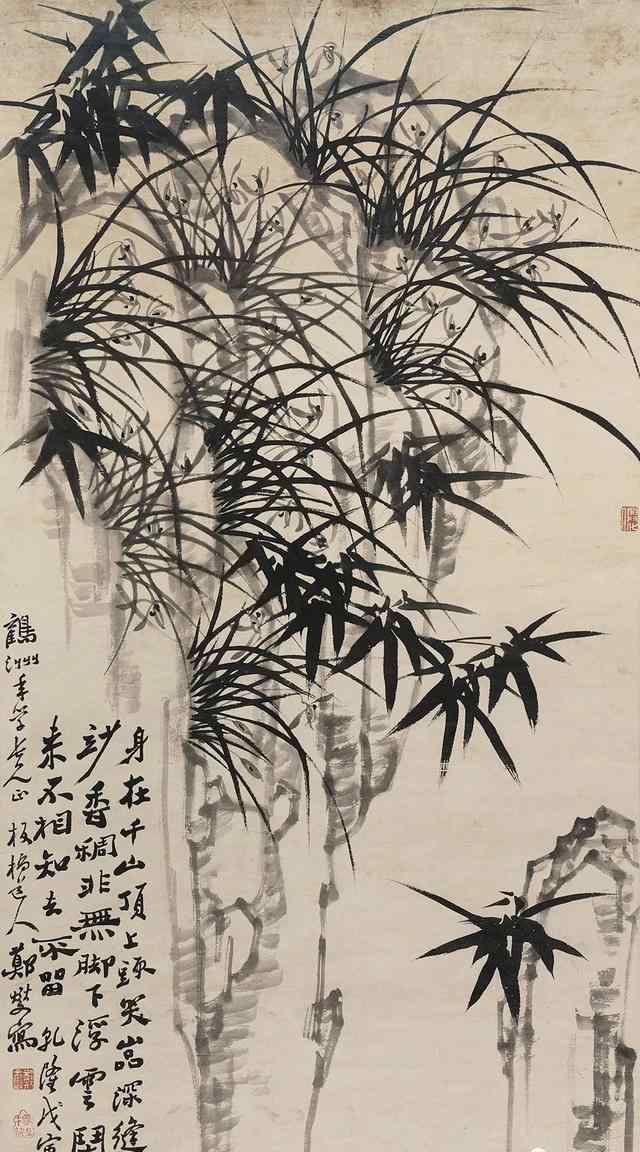 身在千山頂上頭突嵒深縫
妙香稠非無脚下浮雲鬧
来不相知去不留 乾隆戊寅
鶴洲年學老人正 板橋道人鄭燮寫